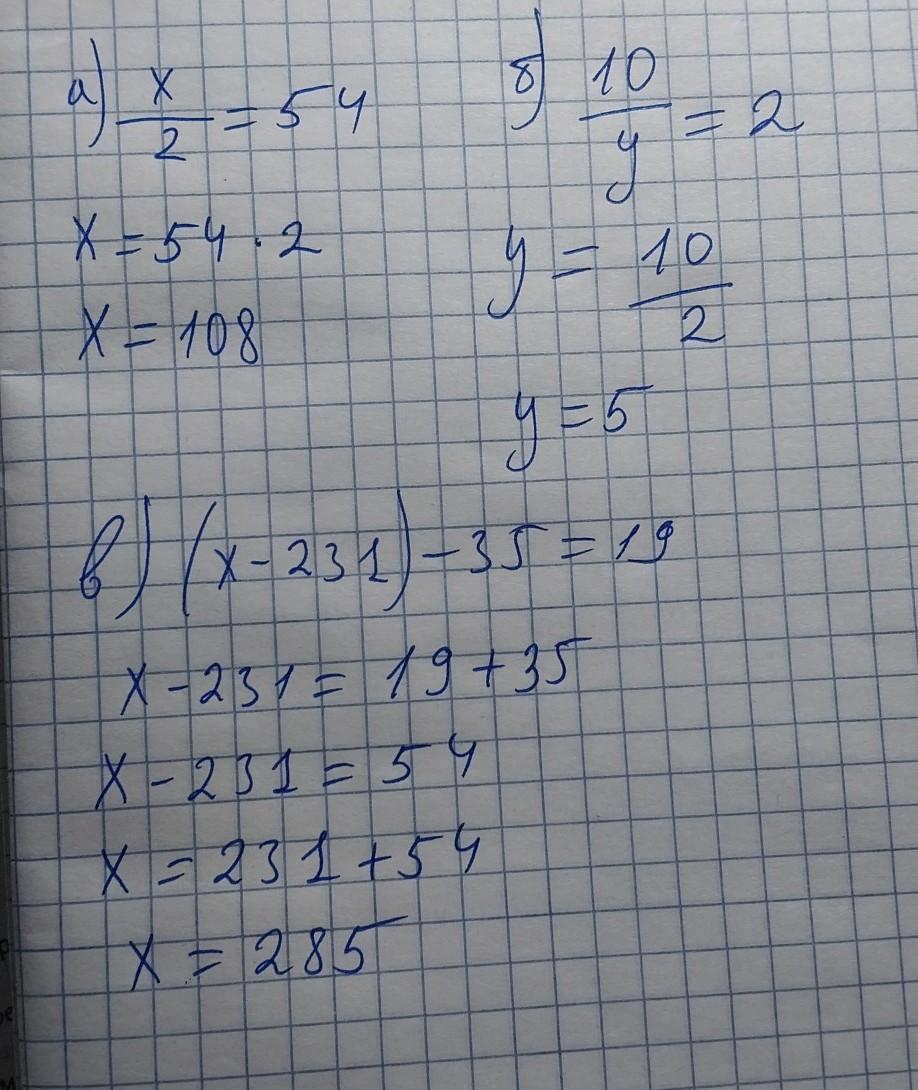 а) x/2 = 54
x = 54 · 2
x = 108
б) 10/y = 2
y = 10/2
y = 5
в) (x - 231) - 35 = 19
x - 231 = 19 + 35
x - 231 = 54
x = 231 + 54
x = 285